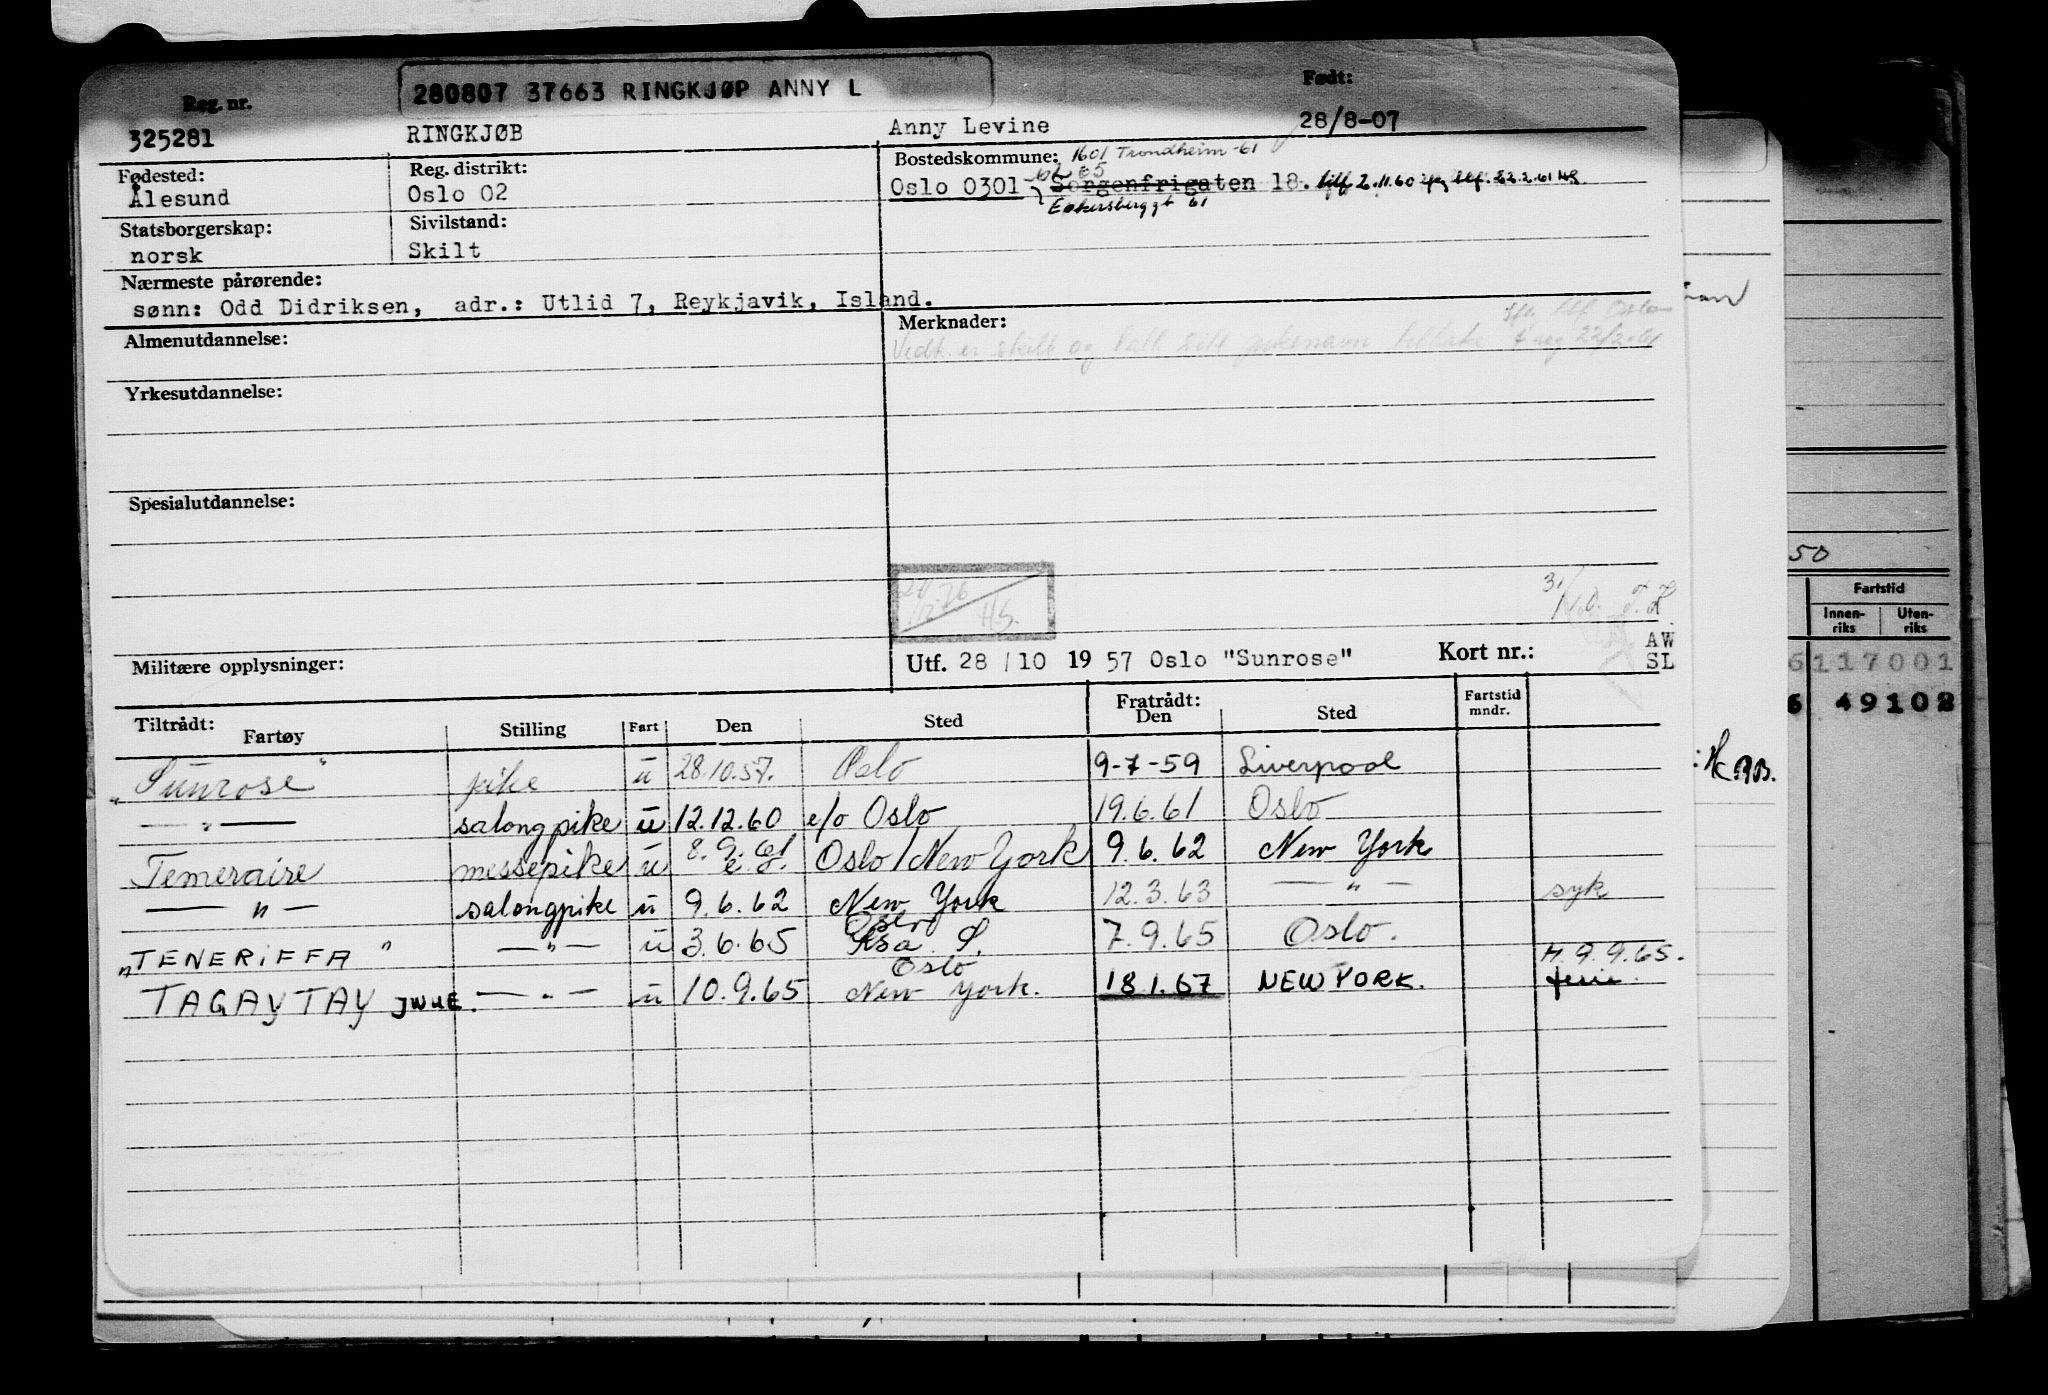 280807 37663 RINGKJØP ANNY L
Reg. nr. Født:
325281 RINGKJØB Anny Levine 28/8-07
Fødested: Reg. distrikt: Bostedskommune: 1601 Trondheim -61
Ålesund Oslo 02 Oslo 0301 Sorgenfrigaten 18. tilf 2.11.60 22.2.61
Ekersberggt 61
Statsborgerskap: Sivilstand:
norsk Skilt
Nærmeste pårørende:
sønn: Odd Didriksen, adr.: Utlid 7, Reykjavik, Island.
Almenutdannelse: Merknader:
Vedk. er skilt og tatt sitt pikenavn tilbake
Yrkesutdannelse:
Spesialutdannelse:
HS.
Militære opplysninger: Utf. 28 / 10 19 57 Oslo "Sunrose" Kort nr.: AW
SL
Tiltrådt: Fratrådt: Fartstid
Fartøy Stilling Fart Den Sted Den Sted mndr.
"Sunrose" pike u 28.10.57. Oslo 9-7-59 Liverpool
— " — salongpike u 12.12.60 e/o Oslo 19.6.61 Oslo
Temeraire messepike u 8.9.61 e.o. Oslo/New York 9.6.62 New York
— " — salongpike u 9.6.62 New York 12.3.63 — " — syk
"TENERIFFA" — " — u 3.6.65 Oslo 7.9.65 Oslo. H. 9.9.65.
TAGAYTAY — " — u 10.9.65 Oslo New York. 18.1.67 NEW YORK. ferie.
50
Fartstid
Innen-
riks Uten-
riks
6 117001
6 49102